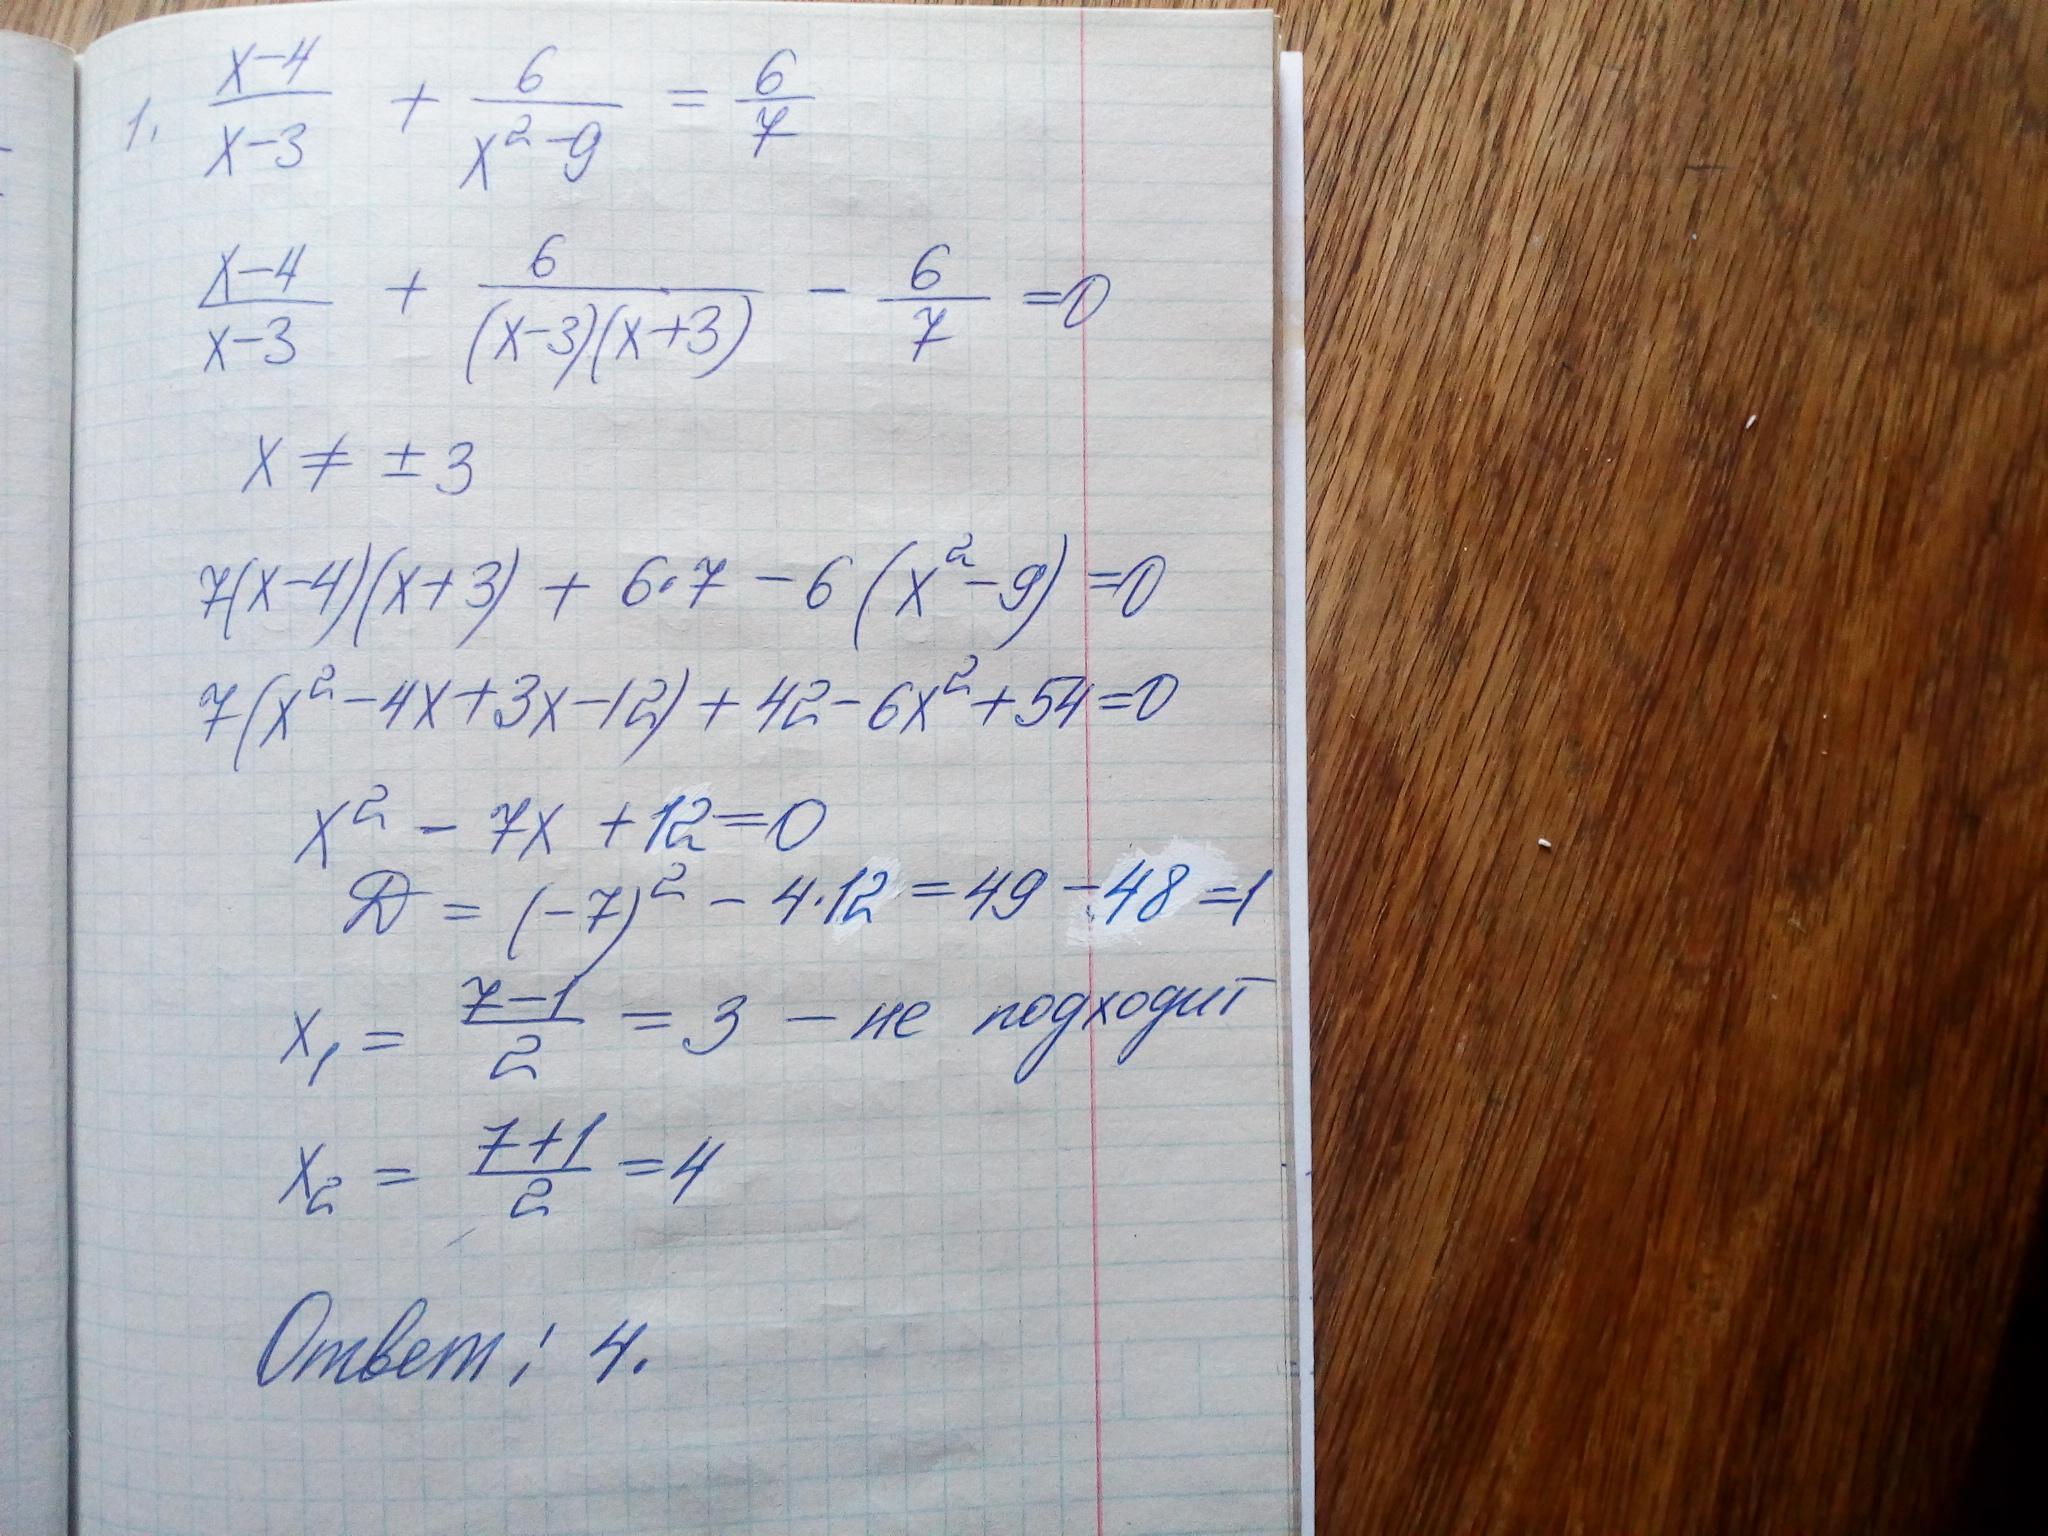 1. (x-4)/(x-3) + 6/(x²-9) = 6/7
(x-4)/(x-3) + 6/((x-3)(x+3)) - 6/7 = 0
x ≠ ± 3
7(x-4)(x+3) + 6·7 - 6(x²-9) = 0
7(x²-4x+3x-12) + 42 - 6x² + 54 = 0
x² - 7x + 12 = 0
D = (-7)² - 4·12 = 49 - 48 = 1
x₁ = (7-1)/2 = 3 - не подходит
x₂ = (7+1)/2 = 4
Ответ: 4.